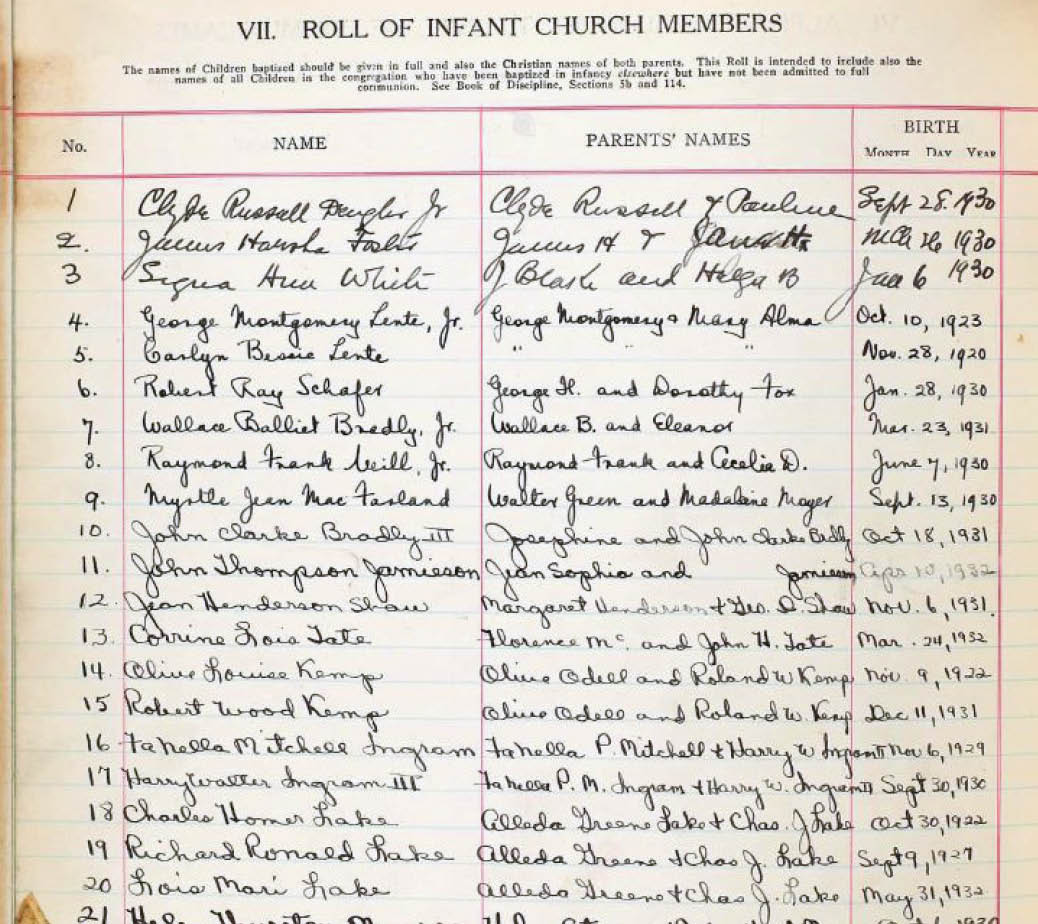 VII. ROLL OF INFANT CHURCH MEMBERS
The names of Children baptized should be given in full and also the Christian names of both parents. This Roll is intended to include also the
names of all Children in the congregation who have been baptized in infancy elsewhere but have not been admitted to full
communion. See Book of Discipline, Sections 5b and 114.
No. NAME PARENTS' NAMES BIRTH
MONTH DAY YEAR
1 Clyde Russell Dengler Jr Clyde Russell & Pauline Sept 28. 1930
2. James Harsha Foster James H & Mch 26 1930
3 Signa Ann White J Blash and Helga B Jan 6 1930
4. George Montgomery Lente, Jr. George Montgomery & Mary Alma Oct. 10, 1923
5. Carlyn Bessie Lente " " " Nov. 28, 1920
6. Robert Ray Schafer George H. and Dorothy Fox Jan. 28, 1930
7. Wallace Balliet Bradly, Jr. Wallace B. and Eleanor Mar. 23, 1931
8. Raymond Frank Weill, Jr. Raymond Frank and Cecelia D. June 7, 1930
9. Myrtle Jean Mac Farland Walter Green and Madalaine Moyer Sept. 13, 1930
10. John Clarke Bradly III Josephine and John Clarke Bradly Oct 18, 1931
11. John Thompson Jamieson Jean Sophia and Jamieson Apr 10, 1932
12. Jean Henderson Shaw Margaret Henderson & Geo. D. Shaw Nov. 6, 1931.
13. Corrine Lois Tate Florence Mc. and John H. Tate Mar. 24, 1932
14. Olive Louise Kemp Olive Odell and Roland W Kemp Nov. 9, 1922
15 Robert Wood Kemp Olive Odell and Roland W. Kemp Dec 11, 1931
16 Fanella Mitchell Ingram Fanella P. Mitchell & Harry W Ingram II Nov 6, 1929
17 Harry Walter Ingram III Fanella P. M. Ingram & Harry W. Ingram II Sept 30, 1930
18 Charles Homer Lake Alleda Greene Lake & Chas. J Lake Oct 30, 1922
19 Richard Ronald Lake Alleda Greene & Chas J. Lake Sept 9, 1927
20 Lois Mari Lake Alleda Greene & Chas J. Lake May 31, 1932
21